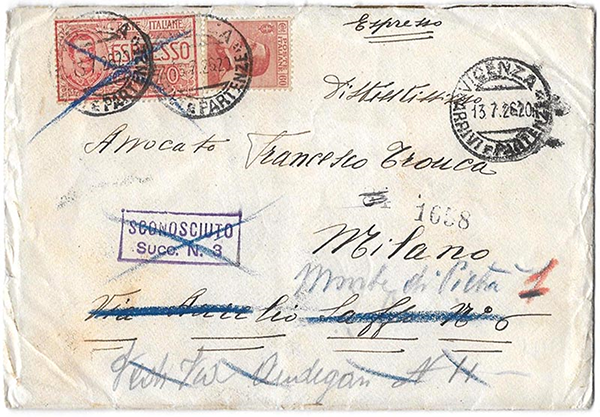 Espresso
POSTE ITALIANE
ESPRESSO
70
VICENZA
13.7.26.20
ARRIVI E PARTENZE
Distintissimo
Avvocato Francesco
1658
Milano
SCONOSCIUTO
Succ. N. 3
Monte di Pietà 1
Via Aurelio Saffi No 6
Vedi Via Andegari N 11